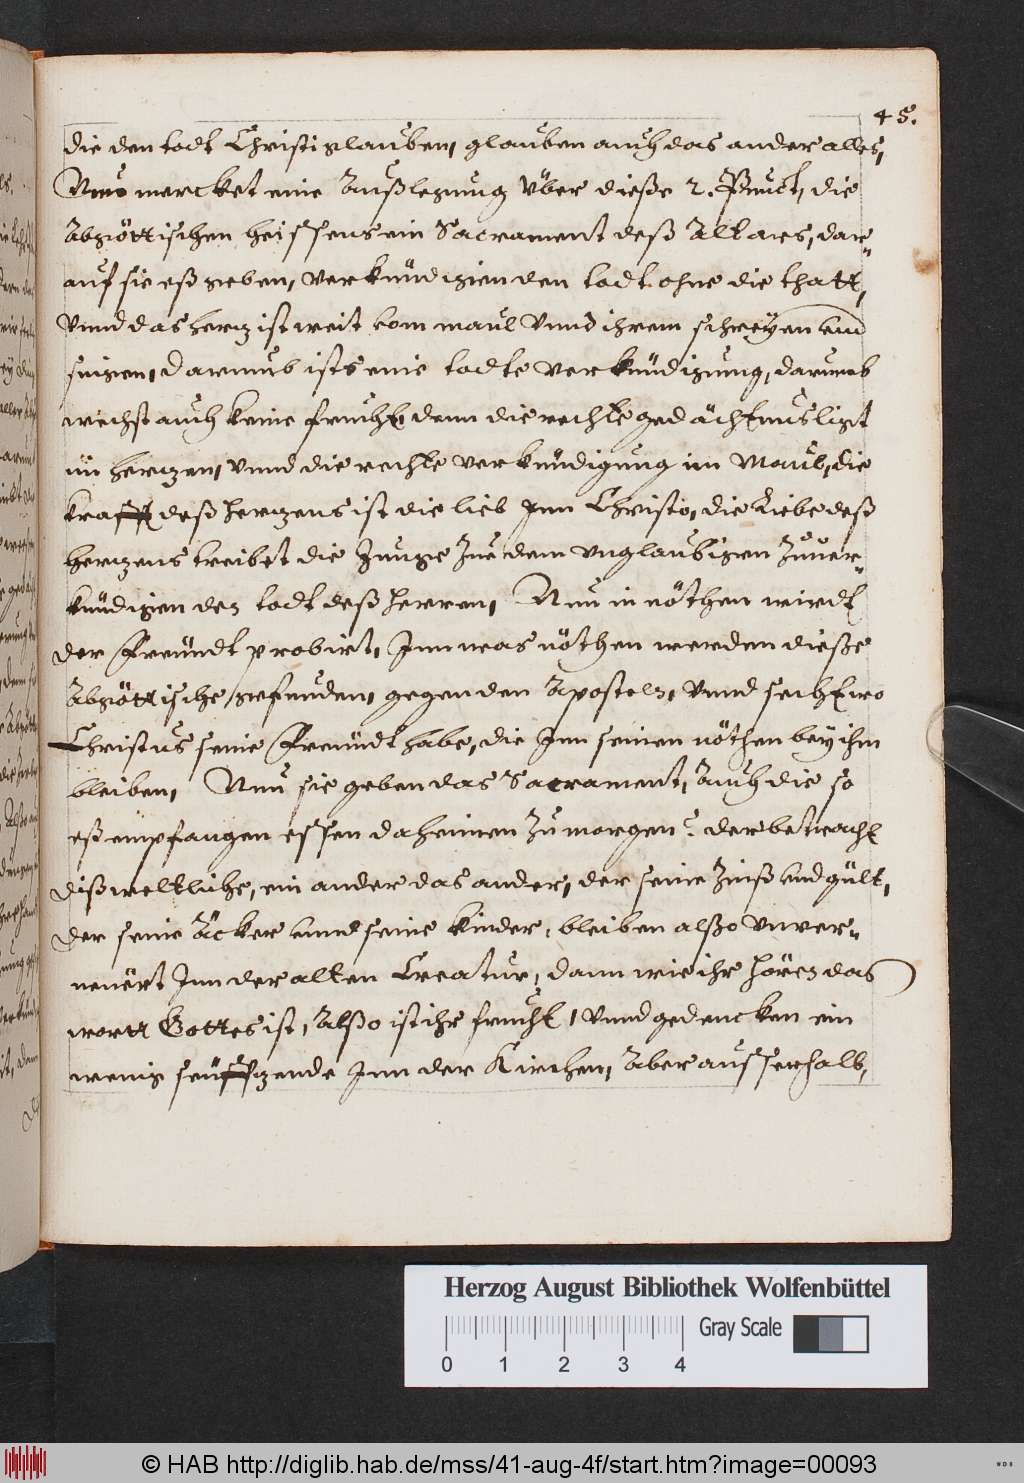 45.
die den todt Christi glauben, glauben auch das ander alles,
Nun mercket eine Außlegung über dieße 2. Punct, die
Abgöttischen heissens ein Sacrament deß Altars, dar-
auf sie eß geben, verkündigen den todt ohne die thatt,
Vnnd das hertz ist weit vom maul Vnnd ihrem schreyen vnd
singen, Darumb ists eine todte verkündigung, darumb
wechst auch keine frucht, denn die rechte gedächtnus ligt
im hertzen, Vnnd die rechte verkündigung im Maul, die
krafft deß hertzens ist die lieb Inn Christo, die Liebe deß
hertzens treibet die Zunge Zue dem vnglaubigen Zuuer-
kündigen den todt deß Herren, Nun in nöthen wirdt
der Freündt probirt, Inn was nöthen werden dieße
Abgöttische gefunden, gegen den Aposteln, Vnnd secht wo
Christus seine Freündt habe, die Inn seinen nöthen bey ihm
bleiben, Nun sie geben das Sacrament, Auch die so
eß empfangen essen daheimen Zu morgen? der betracht
diß weltliche, ein ander das ander, der seine Zinß vnd gült,
der seine Äcker vnnd seine kinder, bleiben alßo vnver-
neuert Inn der alten Creatur, dann wie ihr hören das
wortt Gottes ist, Alßo ist ihr frucht, Vnnd gedencken ein
wenig seüffzende Inn der Kirchen, Aber ausserhalb,
Herzog August Bibliothek Wolfenbüttel
Gray Scale
0 1 2 3 4
© HAB http://diglib.hab.de/mss/41-aug-4f/start.htm?image=00093